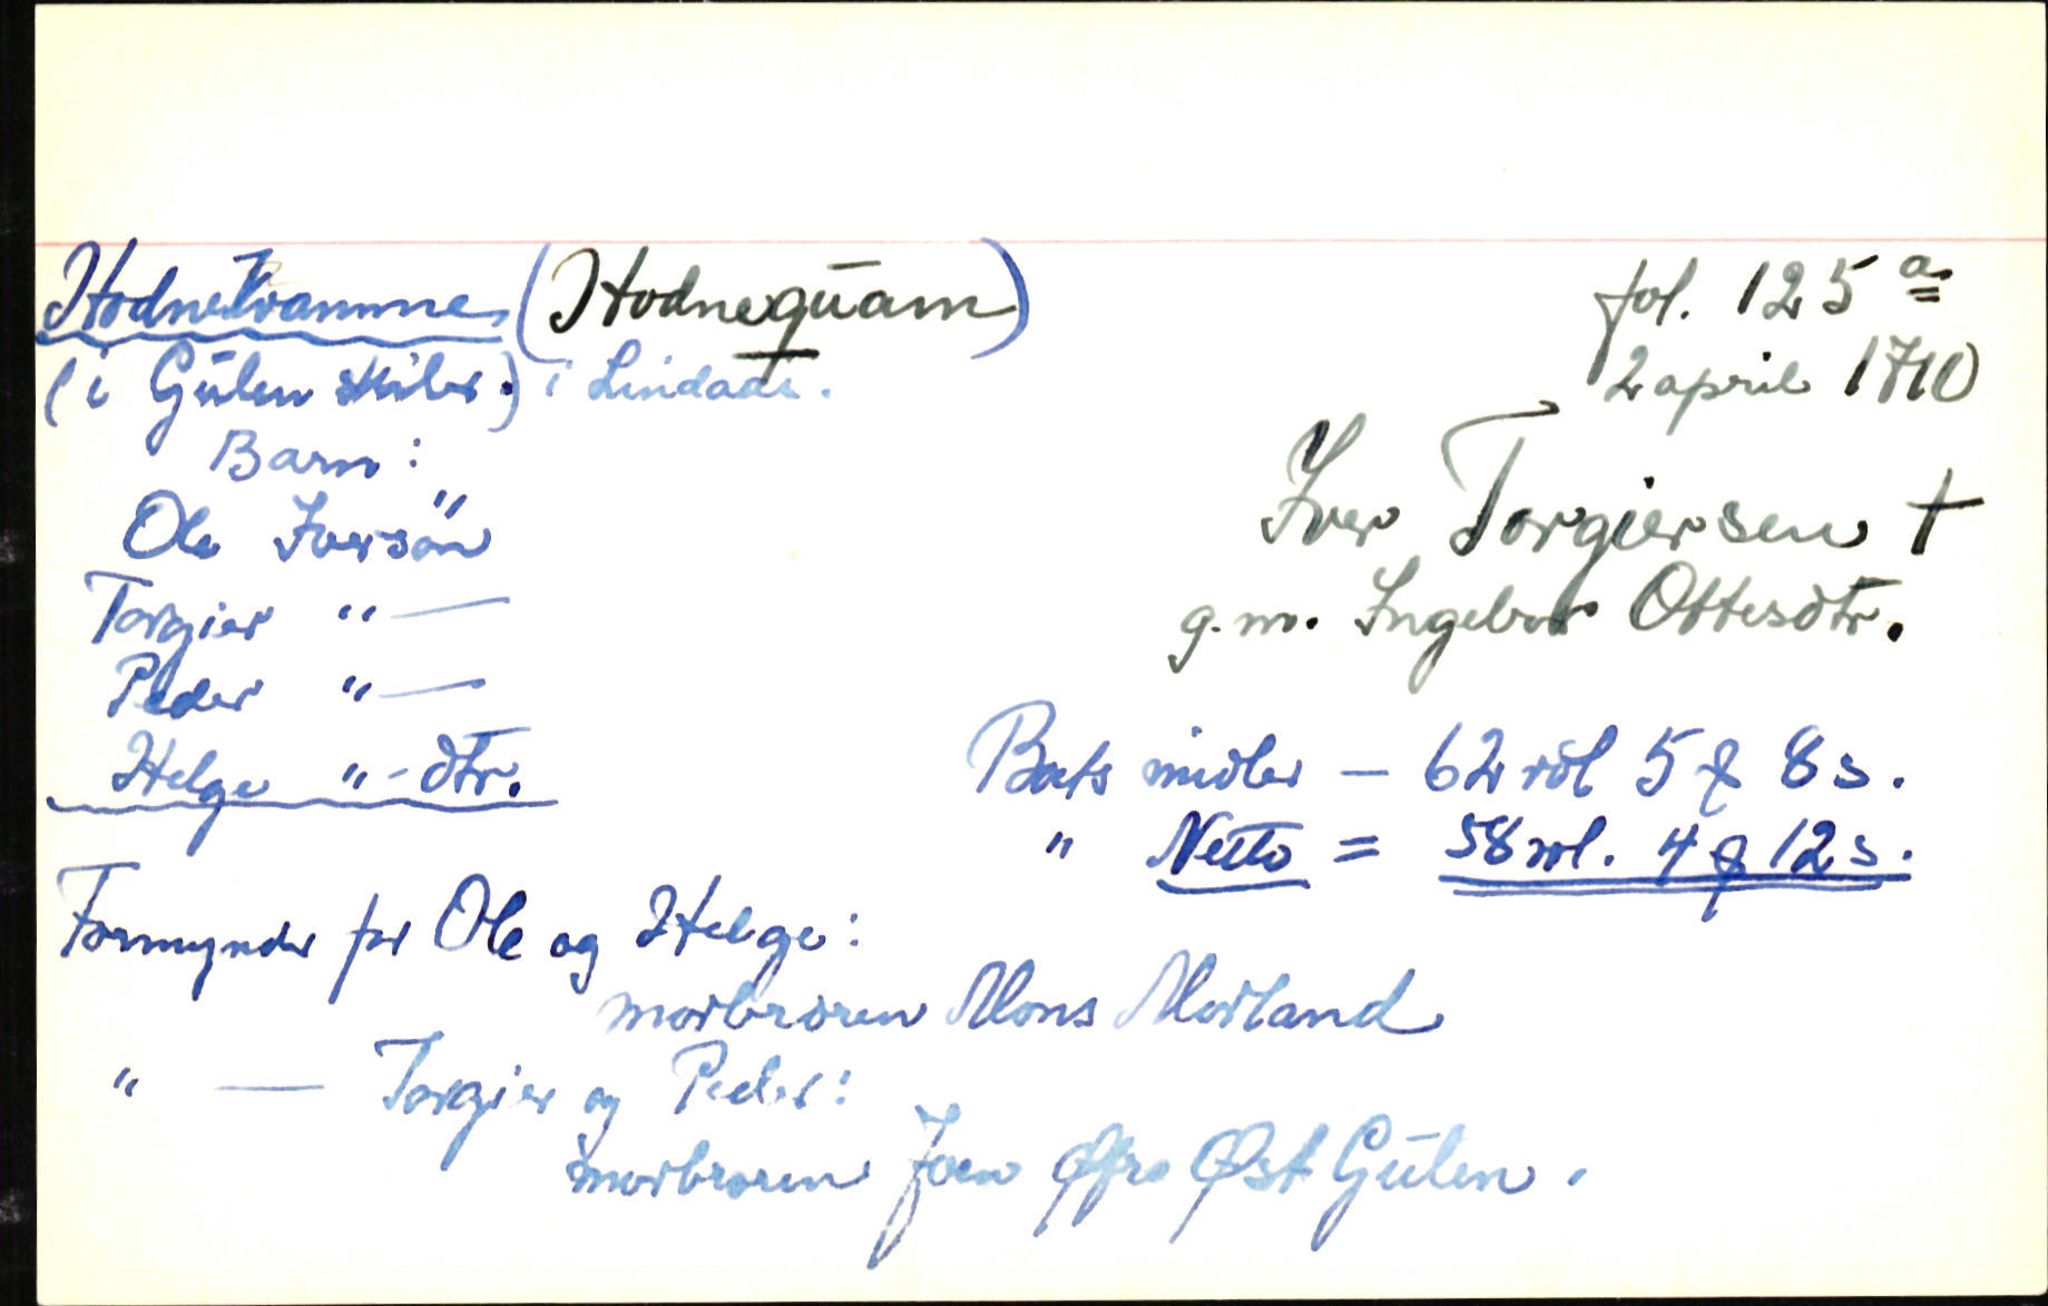 Hodnekvamme (Hodnequam) fol. 125 a
(i Gulen skibr.) i Lindaas. 2 april 1710
Barn:
Ole Iversön Iver Torgiersen †
Torgier " — g.m. Ingebor Ottesdtr.
Peder " —
Helge " - dtr. Bots midler — 62 rdl 5 ƒ 8 s.
" Netto = 58 rdl. 4 ƒ 12 s.
Formynder for Ole og Helge:
morbroren Mons Morland
" — Torgier og Peder:
morbroren Joen Øfre Øst Gulen.